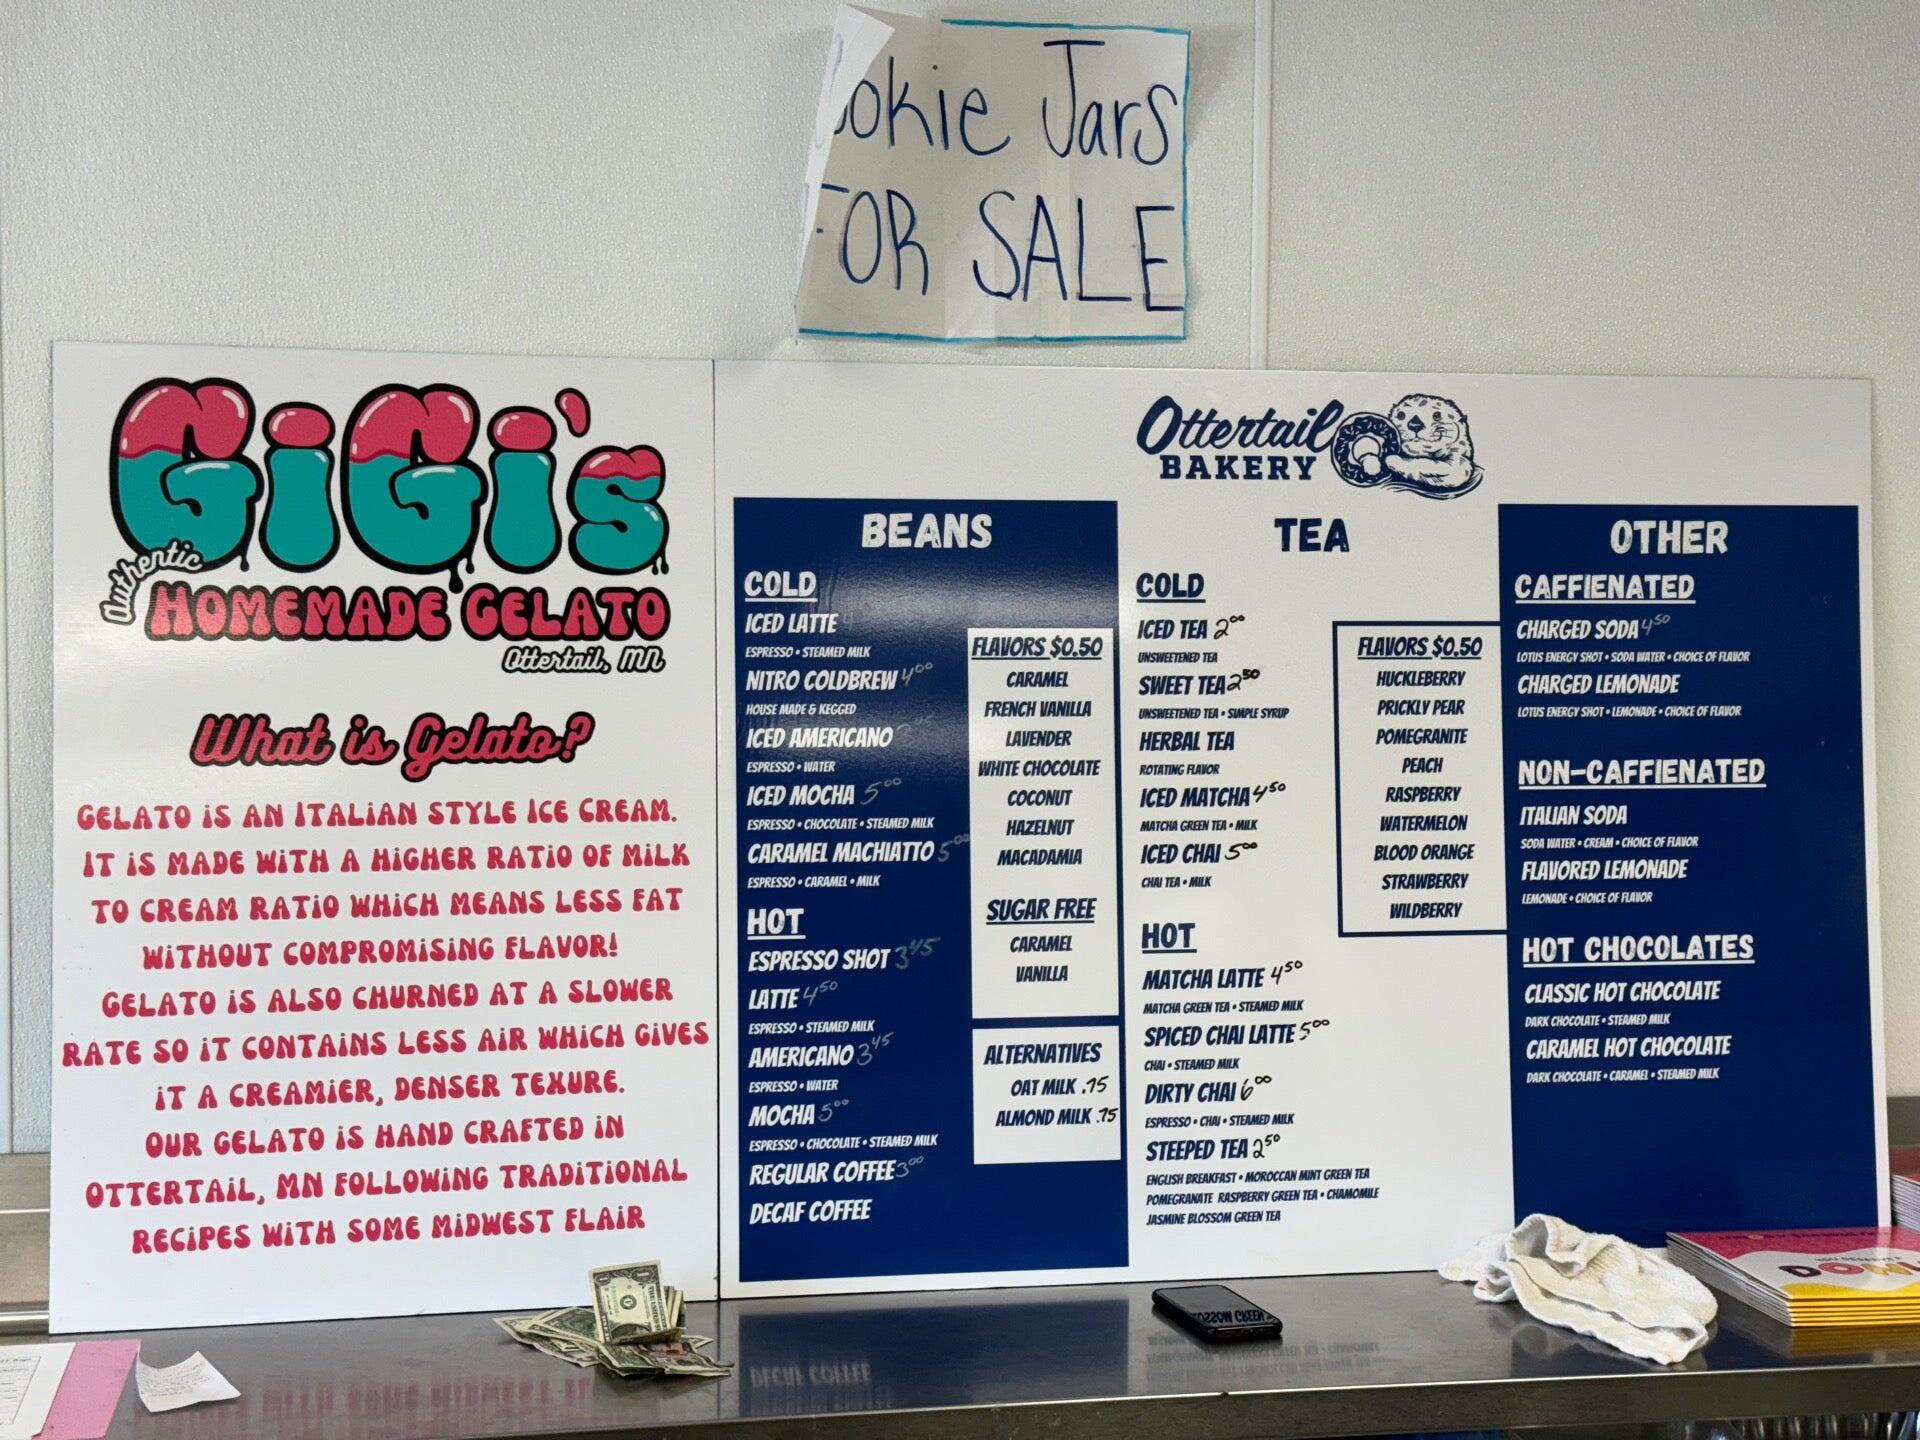 ookie Jars
FOR SALE
GiGi's
Authentic
HOMEMADE GELATO
Ottertail, MN
What is Gelato?
GELATO IS AN ITALIAN STYLE ICE CREAM.
IT IS MADE WITH A HIGHER RATIO OF MILK
TO CREAM RATIO WHICH MEANS LESS FAT
WITHOUT COMPROMISING FLAVOR!
GELATO IS ALSO CHURNED AT A SLOWER
RATE SO IT CONTAINS LESS AIR WHICH GIVES
IT A CREAMIER, DENSER TEXURE.
OUR GELATO IS HAND CRAFTED IN
OTTERTAIL, MN FOLLOWING TRADITIONAL
RECIPES WITH SOME MIDWEST FLAIR
Ottertail
BAKERY
BEANS
COLD
ICED LATTE
ESPRESSO • STEAMED MILK
NITRO COLDBREW 4.00
HOUSE MADE & KEGGED
ICED AMERICANO
ESPRESSO • WATER
ICED MOCHA 5.00
ESPRESSO • CHOCOLATE • STEAMED MILK
CARAMEL MACHIATTO 5.00
ESPRESSO • CARAMEL • MILK
HOT
ESPRESSO SHOT 3.45
LATTE 4.50
ESPRESSO • STEAMED MILK
AMERICANO 3.45
ESPRESSO • WATER
MOCHA 5.00
ESPRESSO • CHOCOLATE • STEAMED MILK
REGULAR COFFEE 3.00
DECAF COFFEE
FLAVORS $0.50
CARAMEL
FRENCH VANILLA
LAVENDER
WHITE CHOCOLATE
COCONUT
HAZELNUT
MACADAMIA
SUGAR FREE
CARAMEL
VANILLA
ALTERNATIVES
OAT MILK .75
ALMOND MILK .75
TEA
COLD
ICED TEA 2.00
UNSWEETENED TEA
SWEET TEA 2.50
UNSWEETENED TEA • SIMPLE SYRUP
HERBAL TEA
ROTATING FLAVOR
ICED MATCHA 4.50
MATCHA GREEN TEA • MILK
ICED CHAI 5.00
CHAI TEA • MILK
HOT
MATCHA LATTE 4.50
MATCHA GREEN TEA • STEAMED MILK
SPICED CHAI LATTE 5.00
CHAI • STEAMED MILK
DIRTY CHAI 6.00
ESPRESSO • CHAI • STEAMED MILK
STEEPED TEA 2.50
ENGLISH BREAKFAST • MOROCCAN MINT GREEN TEA
POMEGRANATE RASPBERRY GREEN TEA • CHAMOMILE
JASMINE BLOSSOM GREEN TEA
FLAVORS $0.50
HUCKLEBERRY
PRICKLY PEAR
POMEGRANITE
PEACH
RASPBERRY
WATERMELON
BLOOD ORANGE
STRAWBERRY
WILDBERRY
OTHER
CAFFIENATED
CHARGED SODA 4.50
LOTUS ENERGY SHOT • SODA WATER • CHOICE OF FLAVOR
CHARGED LEMONADE
LOTUS ENERGY SHOT • LEMONADE • CHOICE OF FLAVOR
NON-CAFFIENATED
ITALIAN SODA
SODA WATER • CREAM • CHOICE OF FLAVOR
FLAVORED LEMONADE
LEMONADE • CHOICE OF FLAVOR
HOT CHOCOLATES
CLASSIC HOT CHOCOLATE
DARK CHOCOLATE • STEAMED MILK
CARAMEL HOT CHOCOLATE
DARK CHOCOLATE • CARAMEL • STEAMED MILK
YOU DESERVE A